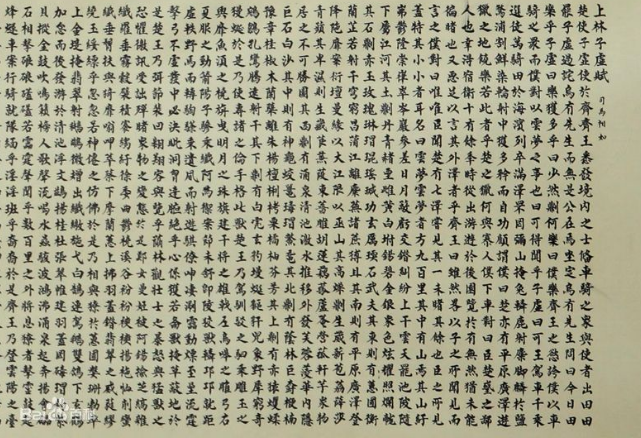 上林子虛賦 司馬相如
楚使子虛使於齊齊王悉發境內之士備車騎之衆與使者出田田
罷子虛過詫烏有先生而無是公在焉坐定烏有先生問曰今日田
樂乎子虛曰樂獲多乎曰少然則何樂曰僕樂齊王之欲誇僕以車
騎之衆而僕對以雲夢之事也曰可得聞乎子虛曰可王駕車千乘
選徒萬騎田於海濱列卒滿澤罘罔彌山掩兔轔鹿射麋脚麟於鹽
浦割鮮染輪射中獲多矜而自功顧謂僕曰楚亦有平原廣澤遊
獵之地饒樂若此者乎楚之獵何與寡人僕下車對曰臣楚之鄙
人也幸得宿衛十有餘年時從出遊於後園覽於有無然猶未能
徧睹也又惡足以言其外澤者乎齊王曰雖然略以子之所聞見而
言之僕對曰唯唯臣聞楚有七澤嘗見其一未睹其餘也臣之所見
蓋特其小小者耳名曰雲夢雲夢者方九百里其中有山焉其山紆
鬱隆崇嵂崒岑巖參差日月蔽虧交錯糾紛上干雲罷池陂陀
下屬江河其土則丹青赭堊雌黃白坿錫碧金銀衆色炫耀照爛龍
其石則赤玉玫瑰琳瑉琨珸瑊玏玄厲瑌石武夫其東則有蕙圃衡
蘭芷若射干穹窮菖蒲江離麋蕪諸蔗猼且其南則有平原廣澤登
降陁靡案衍壇曼緣以大江限以巫山其高燥則生葴苞荔薛莎
青薠其卑濕則生藏莨蒹葭東蘠彫胡蓮藕菰蘆菴䕡軒芋衆物
居之不可勝圖其西則有湧泉清池激水推移外發芙蓉菱華內隱
巨石白沙其中則有神龜蛟鼉瑇瑁鱉黿其北則有陰林巨樹楩柟
豫章桂椒木蘭檗離朱楊樝梨梬栗橘柚芬芳其上則有赤猿蠷蝚
鵷鶵孔鸞騰遠射干其下則有白虎玄豹蟃蜒貙豻兕象野犀窮奇
獌狿於是乃使專諸之倫手格此獸楚王乃駕馴駁之駟乘雕玉之
輿靡魚須之橈旃曳明月之珠旗建干將之雄戟左烏嗥之雕弓右
夏服之勁箭陽子驂乘纖阿為御案節未舒即陵狡獸轔邛邛蹵距
虛軼野馬騊駼乘遺風而射遊騏倏眒凄浰雷動熛至星流霆
擊弓不虛發中必決眥洞胸達腋絕乎心繫獲若雨獸掩草蔽地於
是楚王乃弭節裴回翱翔容與覽乎陰林觀壯士之暴怒與猛獸之
恐懼徼受詘殫睹衆物之變態於是鄭女曼姬被阿錫揄紵縞雜
纖羅垂霧縠襞積褰縐紆徐委曲鬱橈谿谷衯衯裶裶揚袘卹削蜚
襳垂髾扶與猗靡噏呷萃蔡下摩蘭蕙上拂羽蓋錯翡翠之威蕤繆
繞玉綏縹乎忽忽若神僊之仿佛於是乃相與獠於蕙圃媻珊勃窣
上金堤掩翡翠射鵕䴊微矰出纖繳施弋白鵠連駕鵝雙鶬下玄鶴
加怠而後發游於清池浮文鷁揚桂枻張翠帷建羽蓋罔瑇瑁釣紫
貝摐金鼓吹鳴籟榜人歌聲流喝水蟲駭波鴻沸涌泉起奔揚會礧
石相擊硠硠礚礚若雷霆聲聞乎數百里之外將息獠者擊靈鼓起
烽燧車案行騎就隊纚乎淫淫班乎裔裔於是齊王乃登雲陽之臺